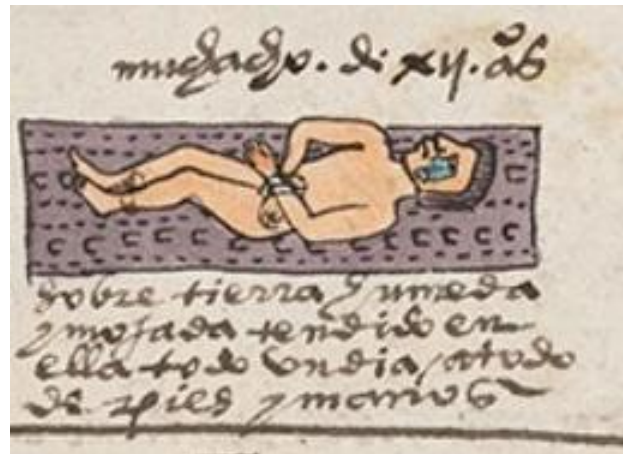 muchacho. di xij. aºs
sobre tierra umeda
y mojada tendido en
ella todo vn dia / atado
de pies y manos